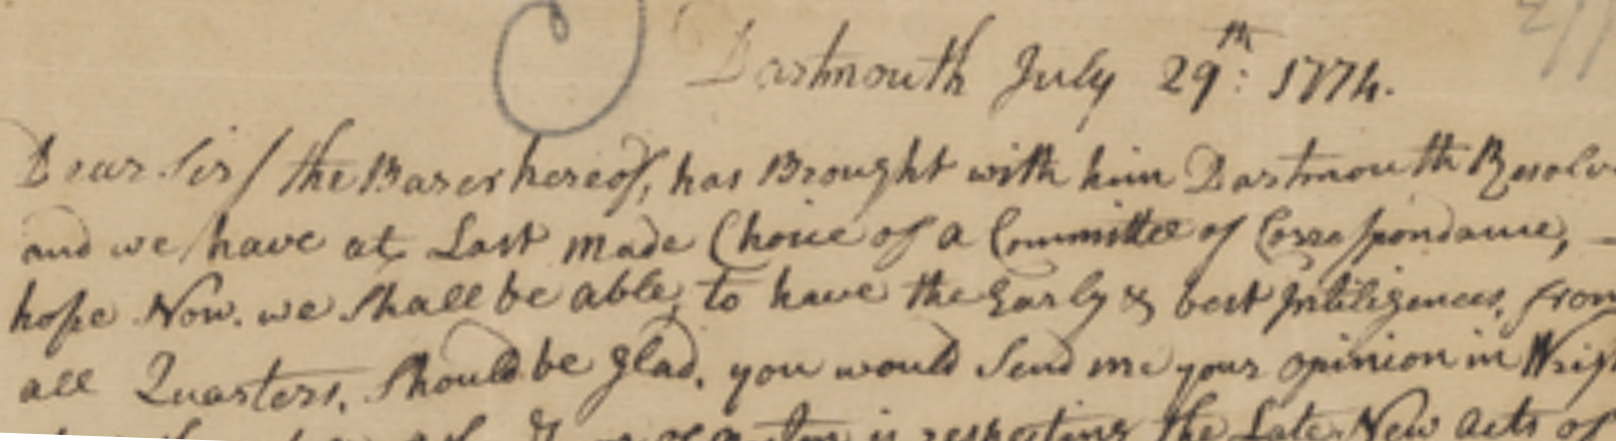 Dartmouth July 29th: 1774.
Dear Sir/ the Barer hereof, has Brought with him Dartmouth Resolv
and we have at Last made Choice of a Committee of Correspondance,
hope Now. we Shall be able, to have the Early & best Intiligences, from
all Quarters, Should be glad, you would Send me your opinion in
is respecting the Late New acts of